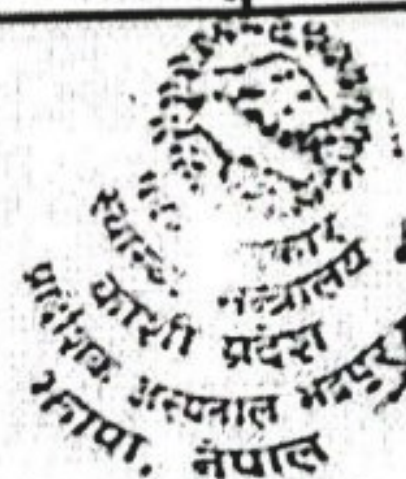 स्वास्थ्य मन्त्रालय
कोशी प्रदेश
प्रादेशिक अस्पताल भद्रपुर
झापा, नेपाल